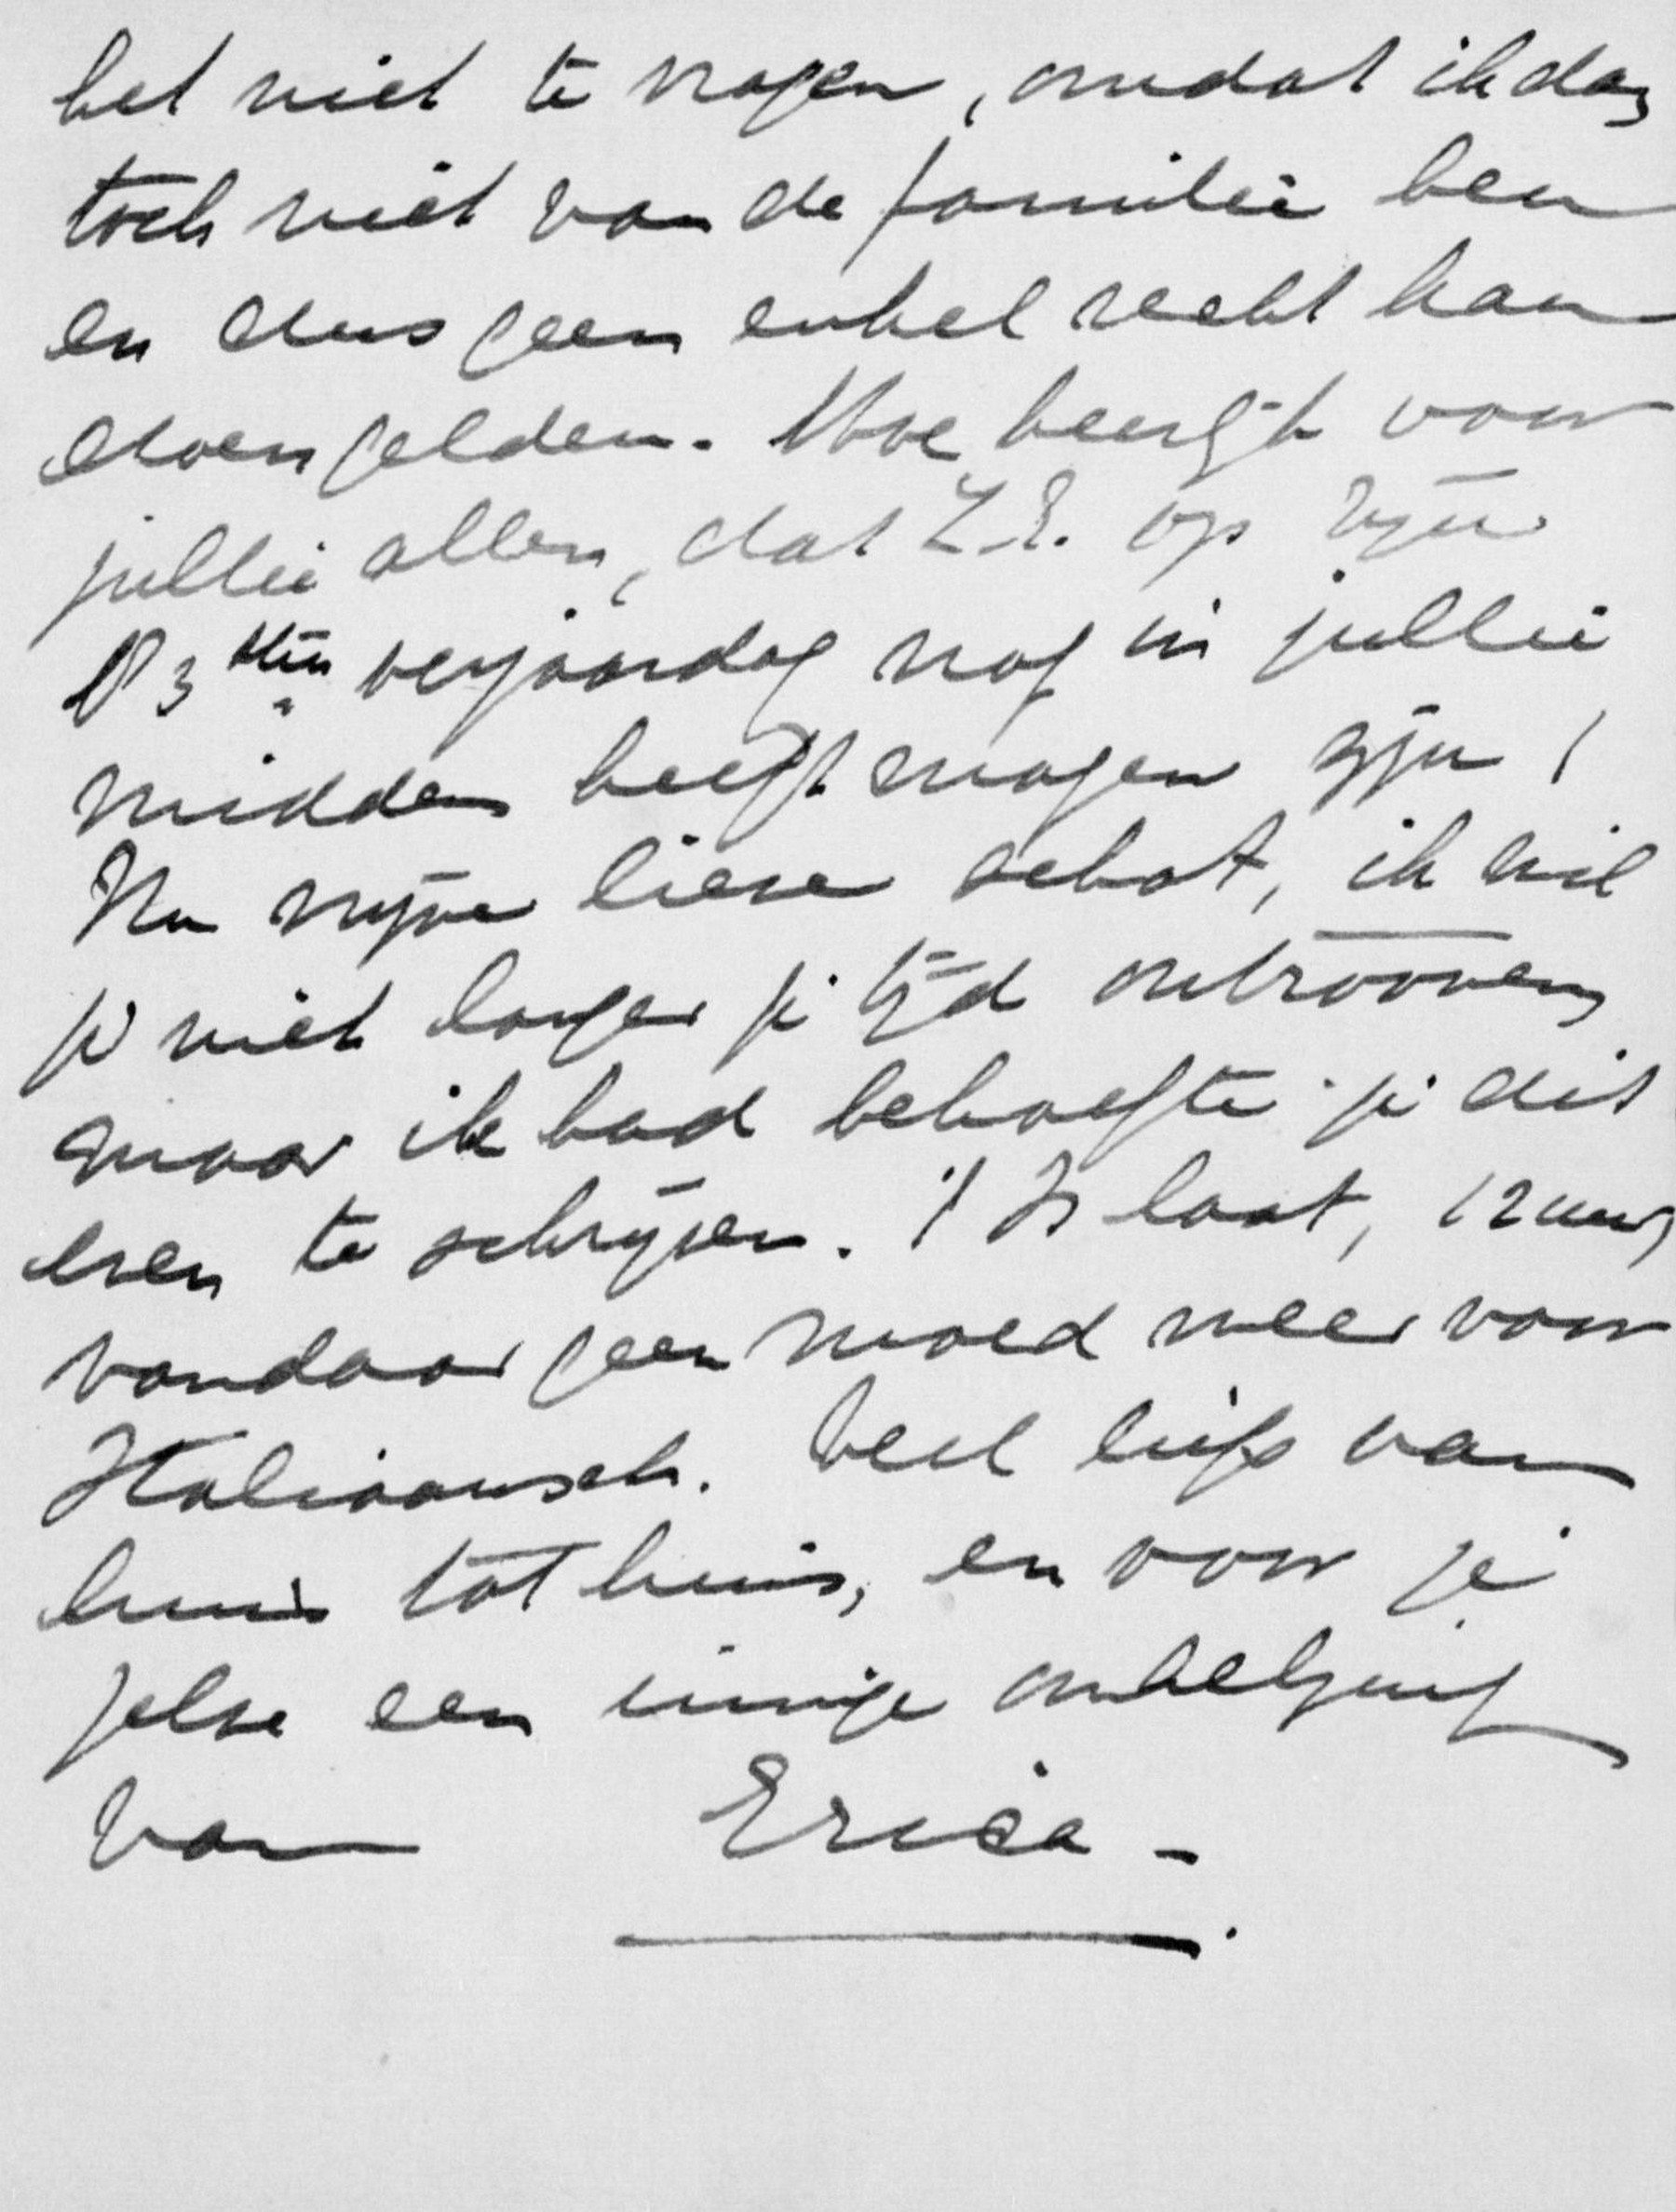 het niet te vragen, omdat ik dan
toch niet van de familie ben
en dus geen enkel recht kan
doen gelden. Hoe heerlijk voor
jullie allen, dat Z.E. op zijn
83sten verjaardag nog in jullie
midden heeft mogen zijn!
Nu mijne lieve schat, ik wil
je niet langer je tijd ontrooven,
maar ik had behoefte je dit
even te schrijven. 't Is laat, 12 uur,
vandaar geen moed meer voor
Italiaansch. Veel liefs van
huis tot huis, en voor je
zelve een innige omhelzing
van Erica -